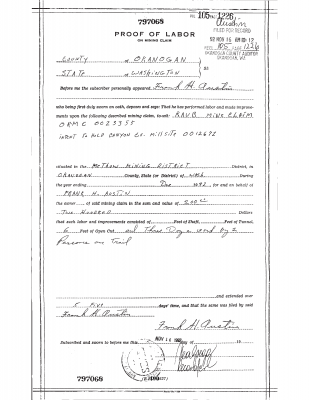 797068
VOL 105 PAGE 1226
Austin
FILED FOR RECORD
92 NOV 16 AM 10:12
REEL 105 PAGE 1226
OKANOGAN COUNTY AUDITOR
OKANOGAN, WA.
PROOF OF LABOR
ON MINING CLAIM
COUNTY of OKANOGAN
STATE of WASHINGTON
} ss
Before me the subscriber personally appeared Frank H. Austin
who being first duly sworn on oath, deposes and says: That he performed labor and made improve-
ments upon the following described mining claims, to-wit:
ORMC
situated in the METHOW MINING DISTRICT District, in
OKANOGAN County, State (or District) of WASH During
the year ending Dec 1992, for and on behalf of
FRANK H. AUSTIN
the owner of said mining claim in the sum and value of 200.00
Two Hundred Dollars
that such labor and improvements consisted of Feet of Shaft, Feet of Tunnel,
6 Feet of Open Cut and Three Days work by 2
Persons on Trail
and extended over
5 Five days' time, and that the same was filed by said
Frank H. Austin
Frank H. Austin
Subscribed and sworn to before me this NOV 16 1992 day of 19
797068